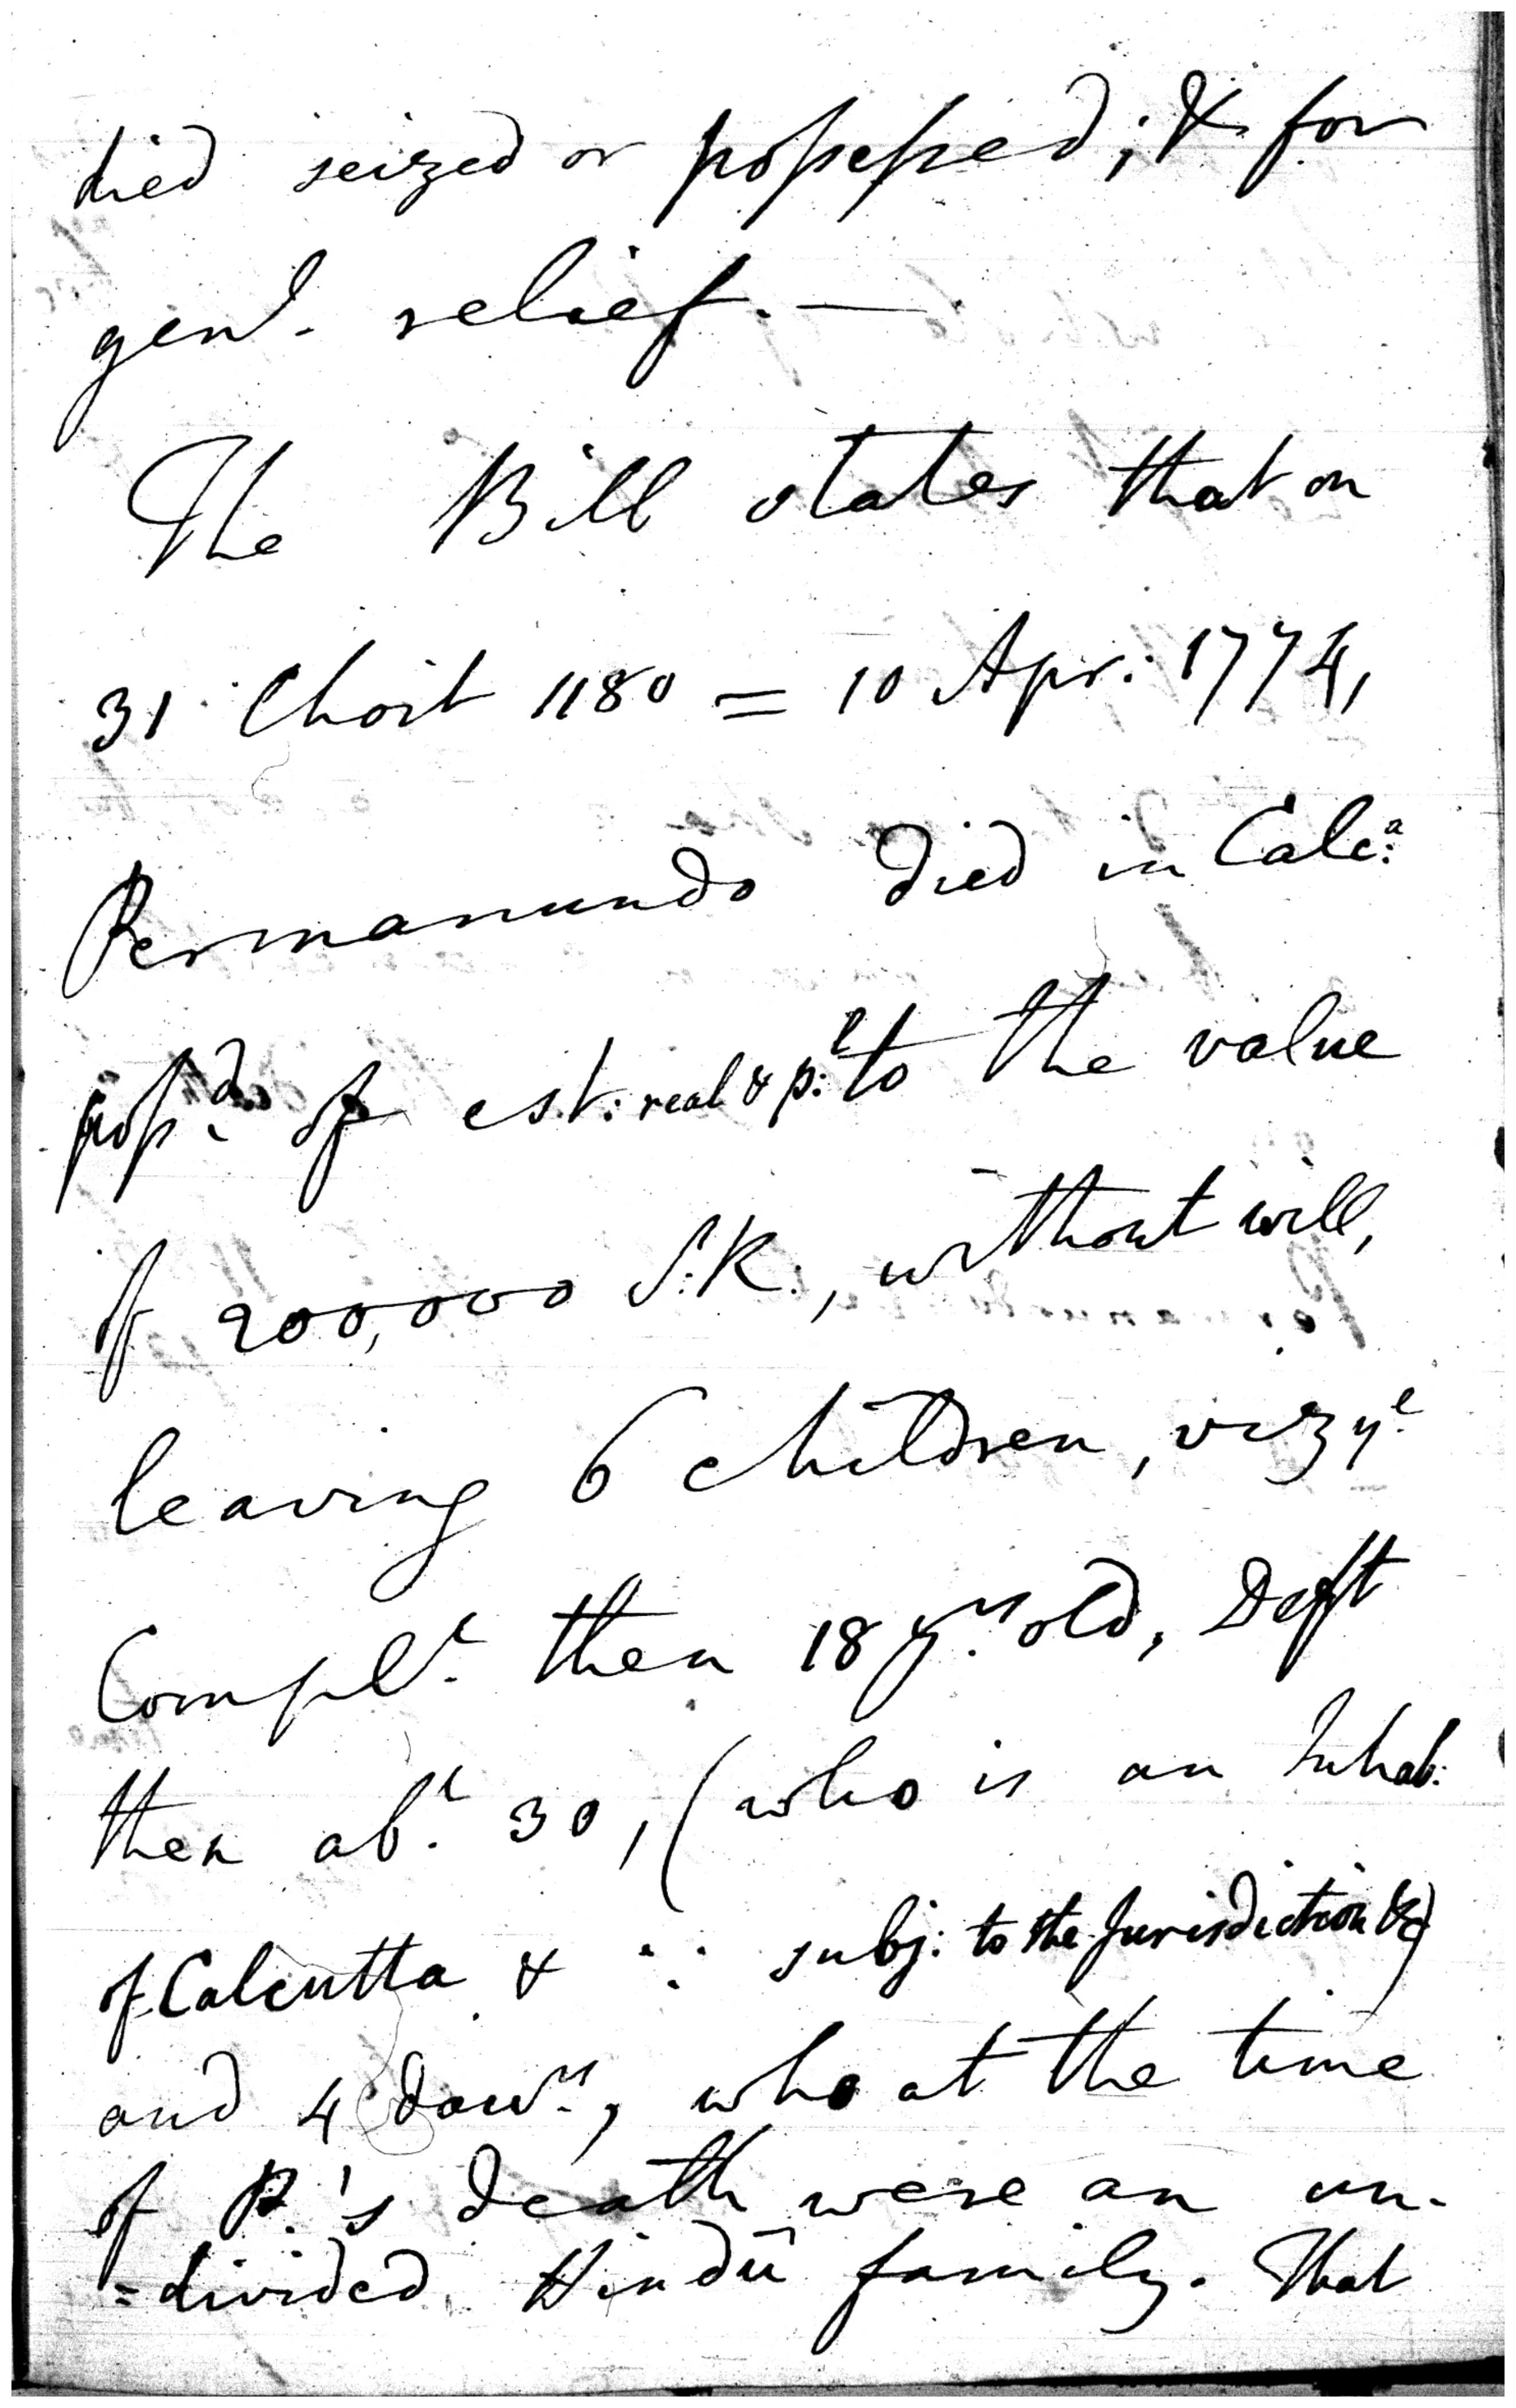 died seized or possessed; & for
genl. relief. —
The Bill states that on
31 Choit 1180 = 10 Apr. 1774,
Permanundo died in Calc:a
possd. of est: real & p:l to the value
of 200,000 S.R., without will,
leaving 6 children, viz ye.
Complt. then 18 yrs. old, Deft
then abt. 30, (who is an Inhab:
of Calcutta & ∵ subj: to the Jurisdiction &c)
and 4 dawrs., who at the time
of P.'s death were an un-
=divided Hindû family. That